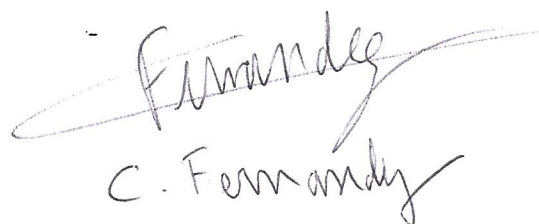 Fernandez
C. Fernandez